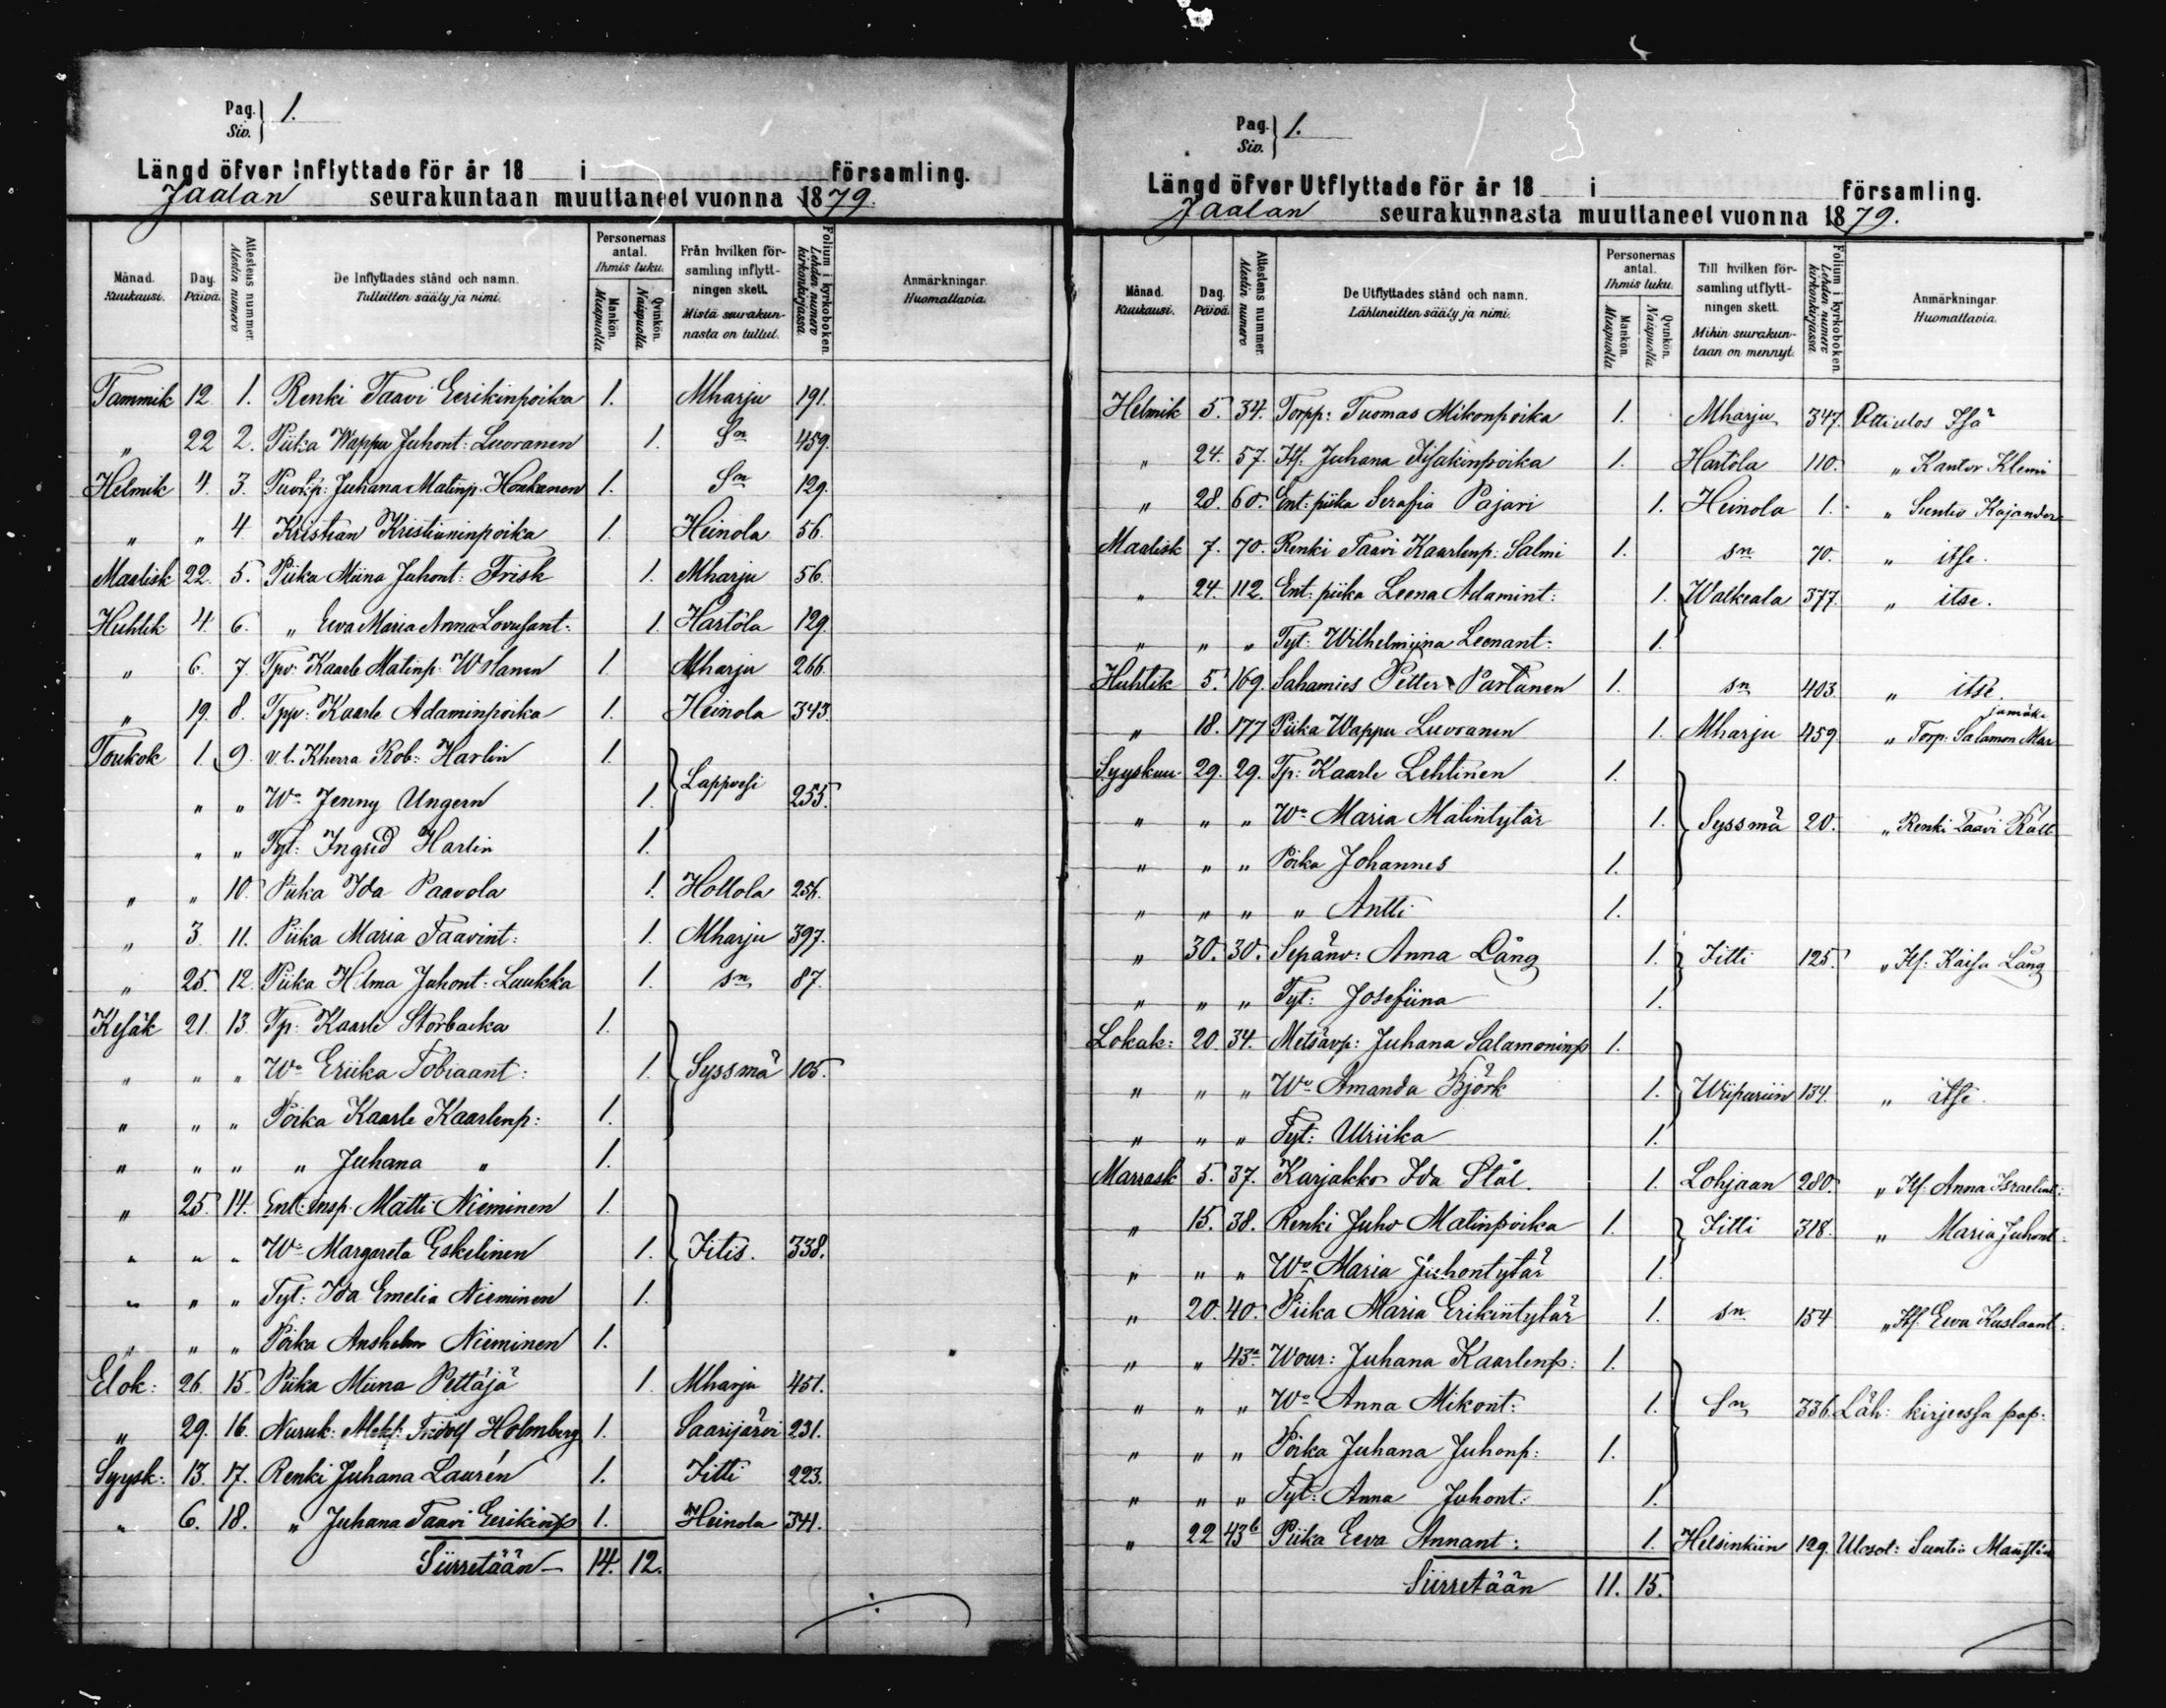 Pag. Siv. } 1.
Längd öfver Inflyttade för år 18 i församling.
Jaalan seurakuntaan muuttaneet vuonna 1879.
Månad. Kuukausi. Day. Päivä. Attestens nummer. Alestin numero. De Inflyttades stånd och namn. Tulleitten sääty ja nimi. Personernas antal. Ihmis luku. Mankön. Miespuolia Qvinkön. Naispuolia. Från hvilken församling inflyttningen skett. Mistä seurakunnasta on tullut. Folium i kyrkoboken. Lehden numero kirkonkirjassa. Anmärkningar. Huomattavia.
Tammik 12 1. Renki Taavi Eerikinpoika 1. Mharju 191.
" 22 2. Piika Wappu Juhont: Luoranen 1. Sn 459.
Helmik 4. 3. Juhana Matinp. Honkanen 1. Sn 129.
" " 4 Kristian Kristianinpoika 1. Heinola 56.
Maalisk 22. 5. Piika Miina Juhont: Frisk 1. Mharju 56.
Huhtik 4. 6. " Eeva Maria Anna 1. Hartola 129.
" 6. 7. Kaarle Matinp. 1. Mharju 266.
" 19. 8. Tpp: Kaarle Adaminpoika 1. Heinola 343.
Toukok 1. 9. v.t. Kherra Rob: Harlin 1.
" " Wo Jenny Ungern 1. Lappvesi 255.
" " Tyt: Ingrid Harlin 1.
" " 10. Piika Ida Paavola 1. Hollola 256.
" 3. 11. Piika Maria Taavint: 1. Mharju 397.
" 25. 12. Piika Hilma Juhont: Laukka 1. sn 87.
Kesäk 21. 13. Tp: Kaarle Storbacka 1.
" " " Wo Eriika Tobiaant: 1. Syssmä 105.
" " " Poika Kaarle Kaarlenp: 1.
" " " " Juhana " 1.
" 25. 14. Ent: insp. Matti Nieminen 1.
" " " Wo Margareta Eskelinen 1. Iitis. 338.
" " " Tyt: Ida Emelia Nieminen 1.
" " " Poika Anshelm Nieminen 1.
Elok: 26. 15. Piika Miina Pettäjä 1. Mharju 451.
" 29. 16. Nuruk: Fridolf Holmberg 1. Saarijärvi 231.
Syysk: 13. 17. Renki Juhana Laurén 1. Iitti 223.
" 6. 18. " Juhana Taavi Eerikinp 1. Heinola 341.
Siirretään 14. 12.
Pag. Siv. } 1.
Längd öfver Utflyttade för år 18 i församling.
Jaalan seurakunnasta muuttaneet vuonna 1879.
Månad. Kuukausi. Dag. Päivä. Attestens nummer. Alestin numero. De Utflyttades stånd och namn. Lähteneitten sääty ja nimi. Personernas antal. Ihmis luku. Mankön. Miespuolia Qvinkön. Naispuolia. Till hvilken församling utflyttningen skett. Mihin seurakuntaan on mennyt. Folium i kyrkoboken. Lehden numero kirkonkirjassa. Anmärkningar. Huomattavia.
Helmik 5. 34. Torpp: Tuomas Mikonpoika 1. Mharju 347. Otti ulos Isä
" 24. 57. Itf: Juhana Iisakinpoika 1. Hartola 110. " Kantor Klemi
" 28. 60. Ent: piika Serafia Pajari 1. Heinola 1. " Suntio Kajander
Maalisk 7. 70. Renki Taavi Kaarlenp: Salmi 1. sn 70. " itse.
" 24. 112. Ent: piika Leena Adamint: 1. Walkeala 377. " itse.
" " " Tyt: Wilhelmiina Leenant: 1.
Huhtik 5. 169. Sahamies Petter Partanen 1. sn 403. " itse.
" 18. 177 Piika Wappu Luoranen 1. Mharju 459. " Torp. Salamon Mar
jamäki
Syyskuu 29. 29. Tp: Kaarle Lehtinen 1.
" " " Wo Maria Matintytär 1. Syssmä 20. " Renki Taavi
" " " Poika Johannes 1.
" " " " Antti 1.
" 30. 30. Sepänv: Anna Lång 1. Iitti 125. " Itf: Kaisa Lång
" " " Tyt: Josefiina 1.
Lokak: 20. 34. Metsävp: Juhana Salamoninp 1.
" " " Wo Amanda Björk 1. Wiipuriin 134. " itse.
" " " Tyt: Ulriika 1.
Marrask 5. 37. Karjakko Ida Stål. 1. Lohjaan 280. " Itf: Anna Israelint:
" 15. 38. Renki Juho Matinpoika 1. Iitti 318. " Maria Juhont:
" " " Wo Maria Juhontytär 1.
" 20. 40. Piika Maria Erikintytär 1. sn 154 " Itf. Ewa
" " 43a Wour: Juhana Kaarlenp: 1.
" " " Wo Anna Mikont: 1. Sn 336. Läh: kirjeessä pap:
" " " Poika Juhana Juhonp: 1.
" " " Tyt: Anna Juhont: 1.
" 22 43b Piika Eeva Annant: 1. Helsinkiin 129. Ulosot: Suntio
Siirretään 11. 15.